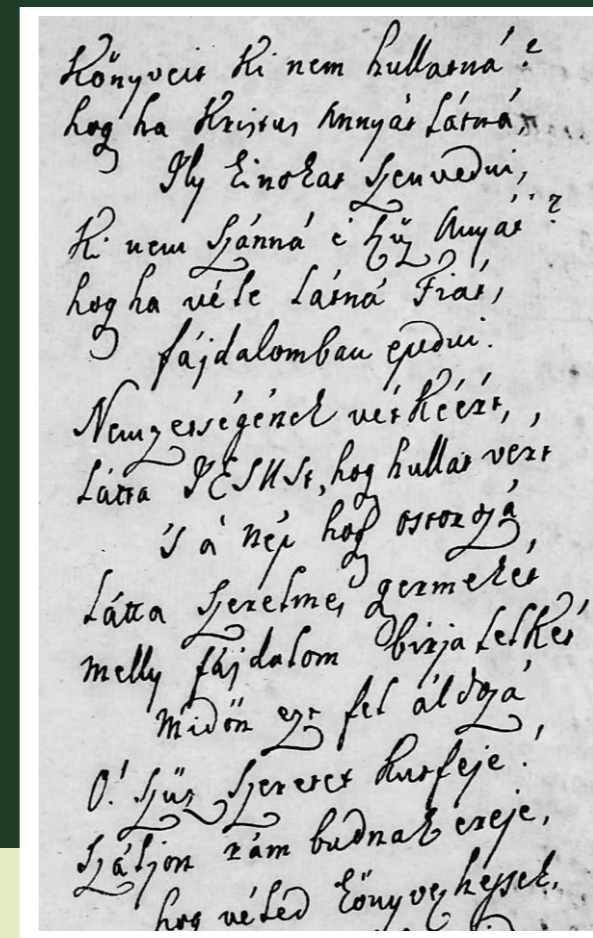 Könyveit Ki nem hullatná?
hog ha Kristus Annyát Látná,
Ily kinokat szenvedni,
Ki nem szánná é szűz Anyát?
hog ha véle Látná Fiát,
fájdalomban epedni.
Nemzetségének vétkéért,
Látta JESUSt, hog hullat vért
's à nép hog ostorozá,
Látta szerelmes germekét
melly fájdalom birja lelkét
midőn ezt fel áldozá
O! szűz szeretet kutfeje!
szálljon rám budnak ereje,
hog véled könyvez hessek,